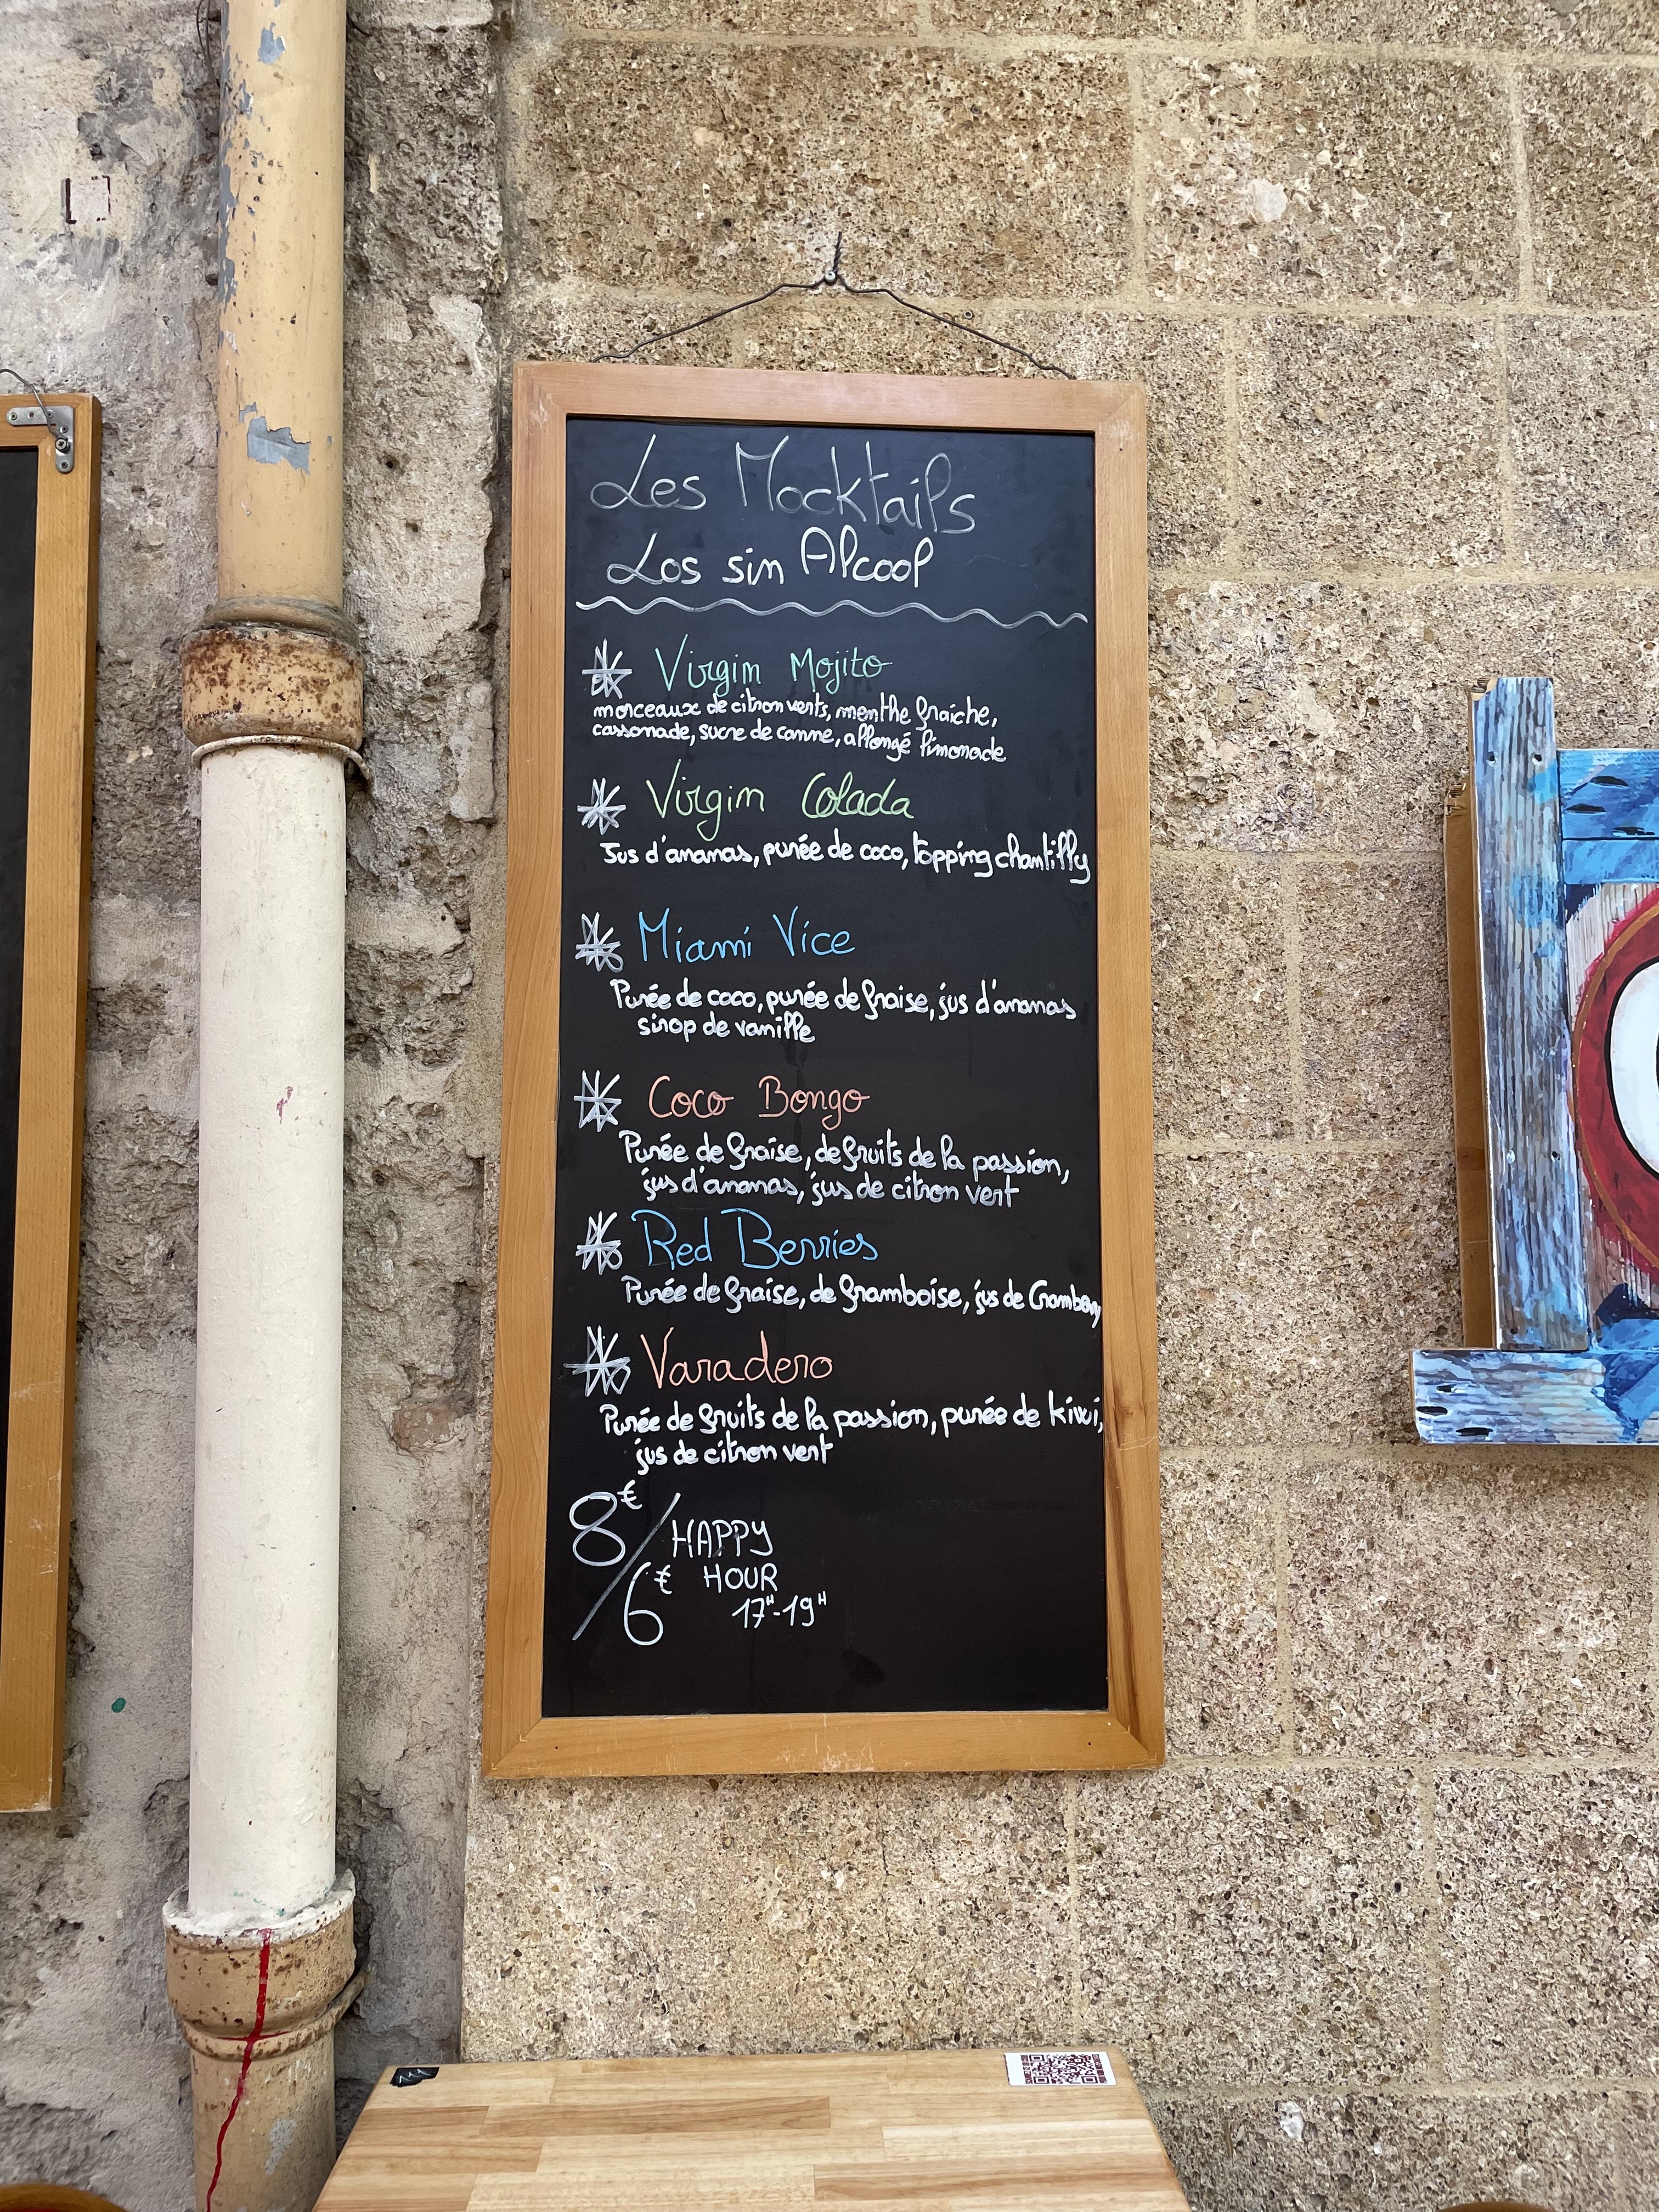 Les Mocktails
Los sin Alcool
Virgin Mojito
morceaux de citron verts, menthe fraiche,
cassonade, sucre de canne, allongé limonade
Virgin Colada
Jus d'ananas, purée de coco, topping chantilly
Miami Vice
Purée de coco, purée de fraise, jus d'ananas
sirop de vanille
Coco Bongo
Purée de fraise, de fruits de la passion,
jus d'ananas, jus de citron vert
Red Berries
Purée de fraise, de framboise, jus de Cramberry
Varadero
Purée de fruits de la passion, purée de kiwi,
jus de citron vert
8€/6€ HAPPY
HOUR
17H-19H